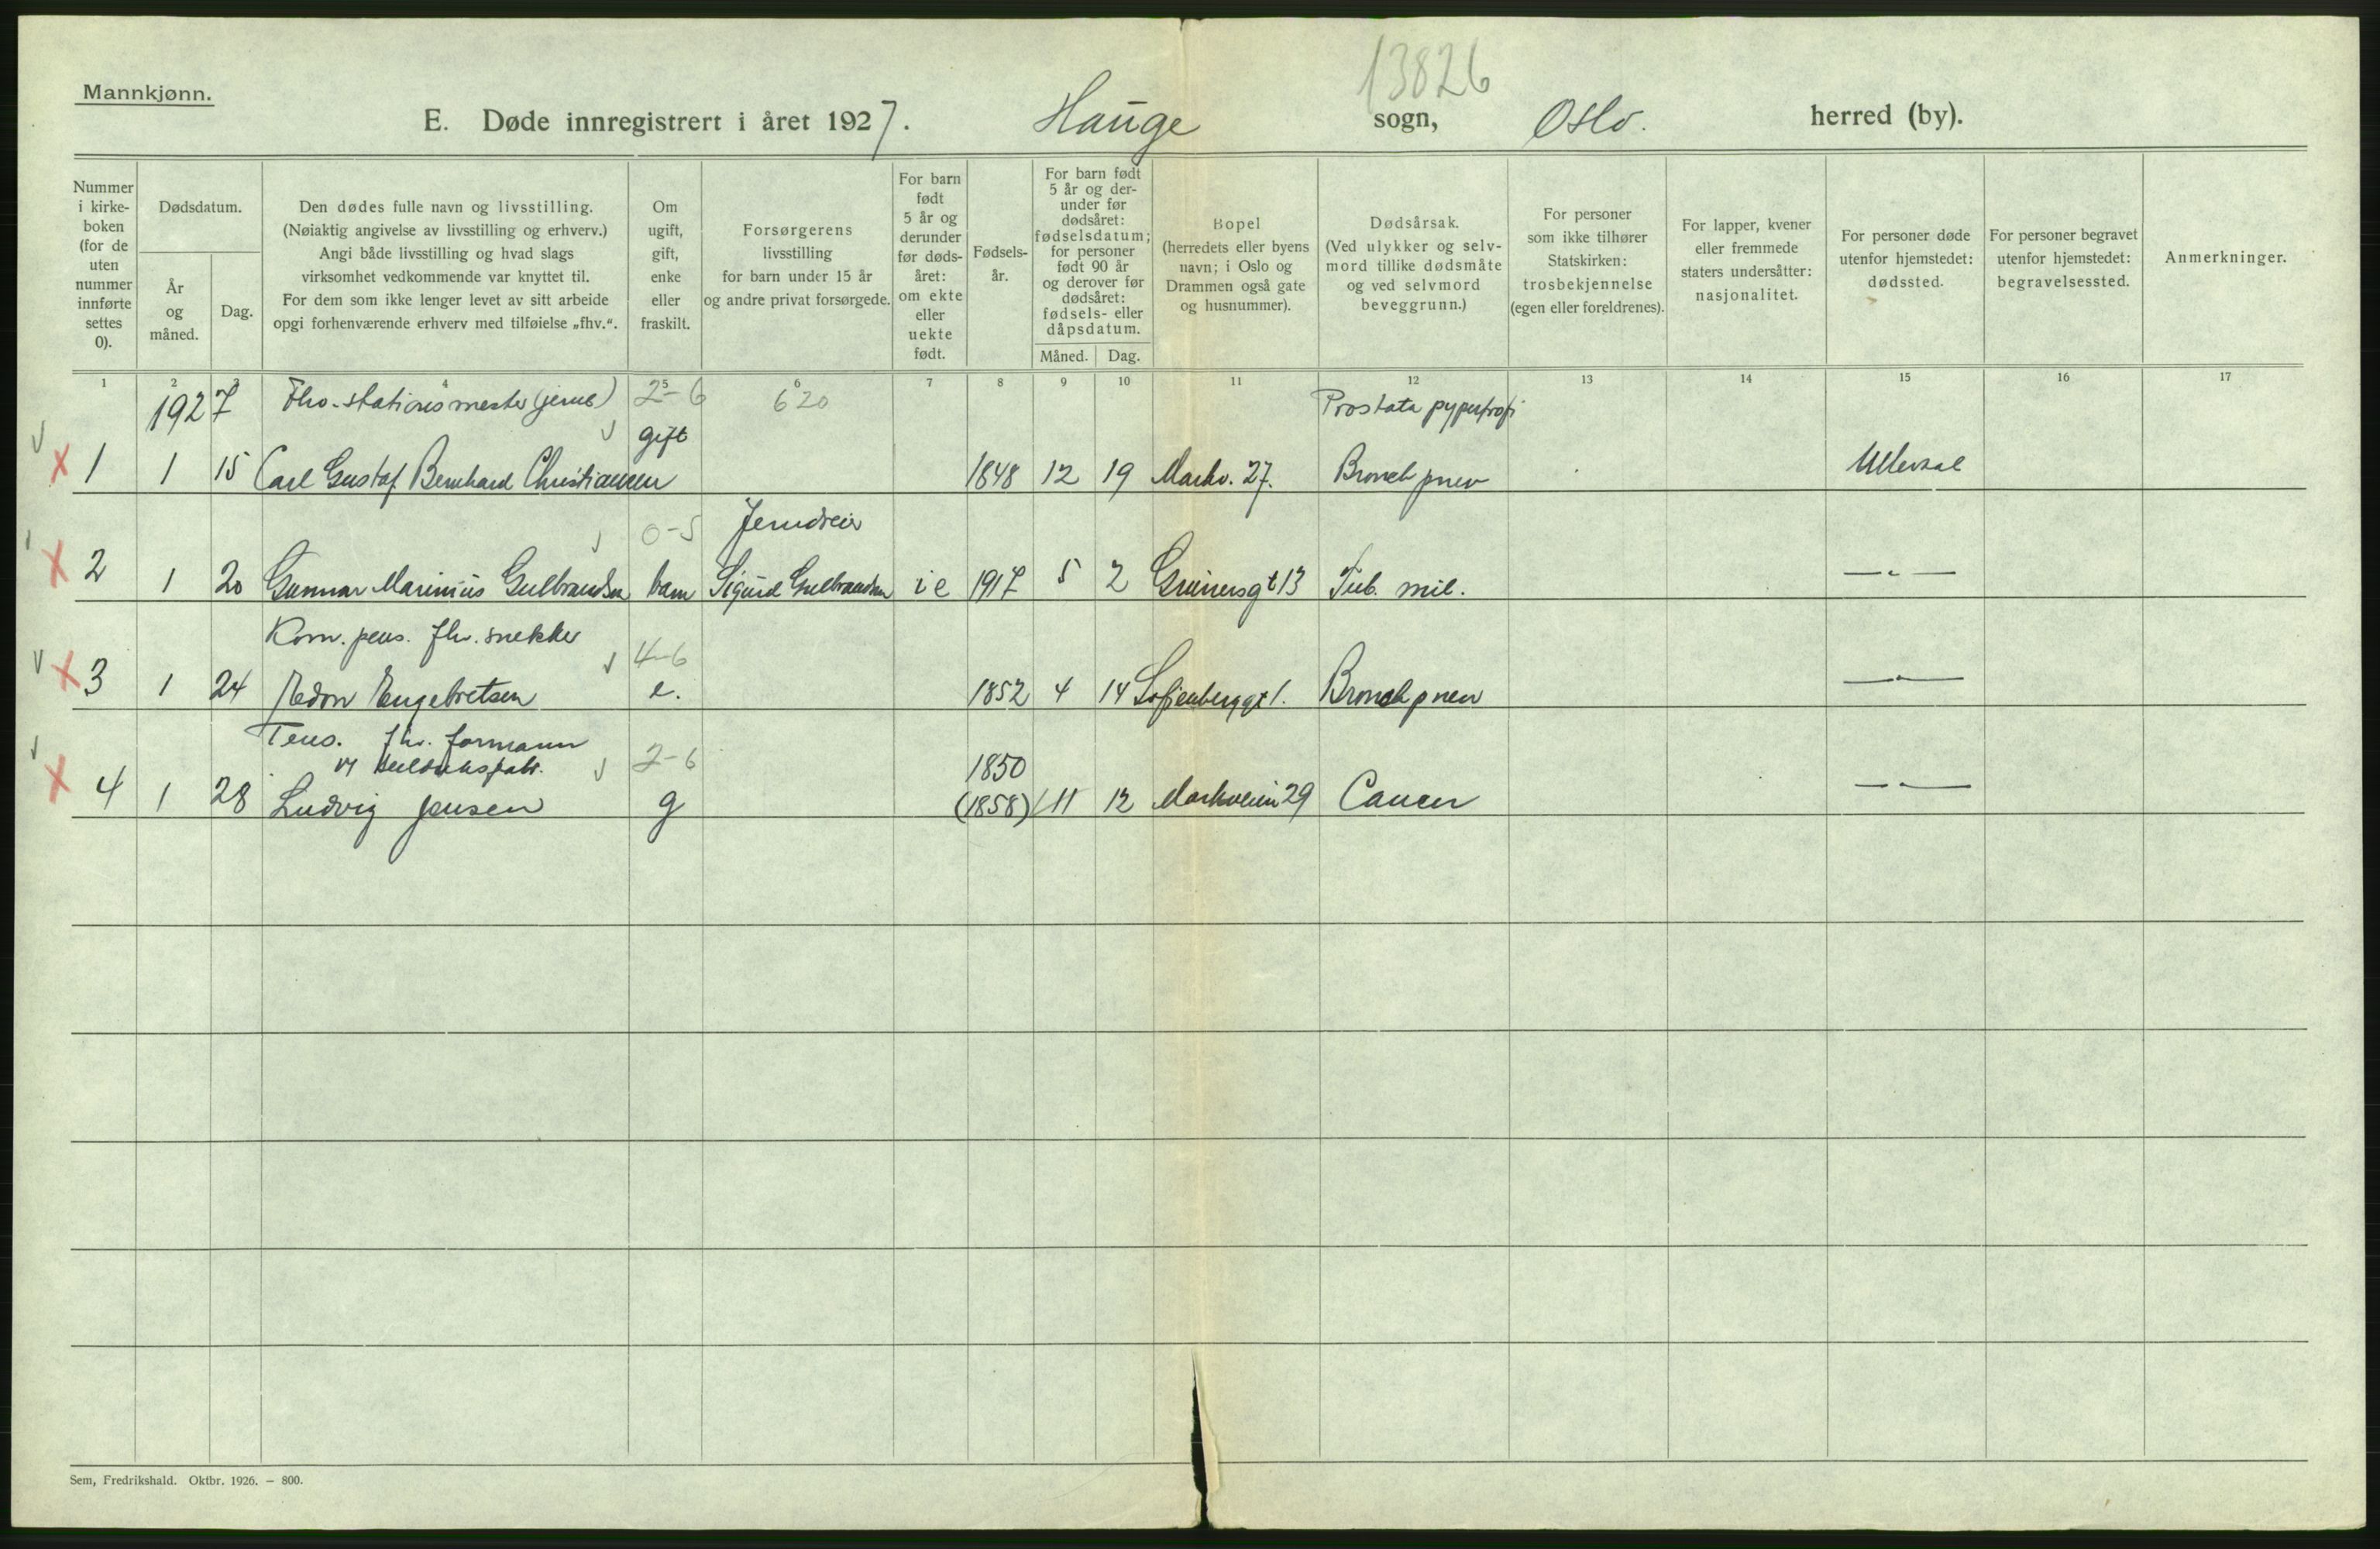 13826
Mannkjønn.
E. Døde innregistrert i året 1927. Hauge sogn, Oslo. herred (by).
Nummer i kirke-boken (for de uten nummer innførte settes 0).
Dødsdatum.
År og måned.
Dag.
Den dødes fulle navn og livsstilling.
(Nøiaktig angivelse av livsstilling og erhverv.)
Angi både livsstilling og hvad slags
virksomhet vedkommende var knyttet til.
For dem som ikke lenger levet av sitt arbeide
opgi forhenværende erhverv med tilføielse „fhv.“.
Om ugift, gift, enke eller fraskilt.
Forsørgerens
livsstilling
for barn under 15 år
og andre privat forsørgede.
For barn født 5 år og derunder før døds-året: om ekte eller uekte født.
Fødsels-år.
For barn født 5 år og der-under før dødsåret: fødselsdatum; for personer født 90 år og derover før dødsåret: fødsels- eller dåpsdatum.
Måned.
Dag.
Bopel
(herredets eller byens
navn; i Oslo og
Drammen også gate
og husnummer).
Dødsårsak.
(Ved ulykker og selv-
mord tillike dødsmåte
og ved selvmord
beveggrunn.)
For personer
som ikke tilhører
Statskirken:
trosbekjennelse
(egen eller foreldrenes).
For lapper, kvener
eller fremmede
staters undersåtter:
nasjonalitet.
For personer døde
utenfor hjemstedet:
dødssted.
For personer begravet
utenfor hjemstedet:
begravelsessted.
Anmerkninger.
1 2 3 4 5 6 7 8 9 10 11 12 13 14 15 16 17
1927 Fhv. stationsmester (jernb) 2-6 620 Prostata pypertrofi
gift
1 1 15 Carl Gustaf Bernhard Christiansen 1848 12 19 Markv. 27. Bronch pnev Ullevaal
0-5 Jerndreier
2 1 20 Gunnar Marinius Gulbrandsen barn Sigurd Gulbrandsen i e 1917 5 2 Grünersgt 13 Tub. mil. — " —
Kom. pens. fhv. snekker 4-6
3 1 24 Edon Engebretsen e. 1852 4 14 Sofienberggt 1. Bronch pnev — " —
Pens. fhv. formann
2-6 1850
4 1 28 Ludvig Jensen g (1858) 11 12 Markveien 29 Cancer — " —
Sem, Fredrikshald. Oktbr. 1926. — 800.